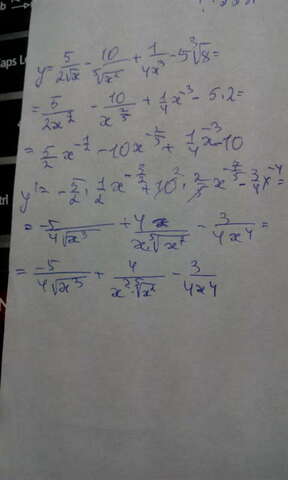 y = 5/(2√x) - 10/⁵√x² + 1/(4x³) - 5∛8 =
= 5/(2x^(1/2)) - 10/x^(2/5) + 1/4 x^(-3) - 5·2 =
= 5/2 x^(-1/2) - 10x^(-2/5) + 1/4 x^(-3) - 10
y' = -5/2 · 1/2 x^(-3/2) + 10² · 2/5 x^(-7/5) - 3/4 x^(-4) =
= -5/(4√x³) + 4x/(x ⁵√x²) - 3/(4x4) =
= -5/(4√x³) + 4/(x² ⁵√x²) - 3/(4x4)